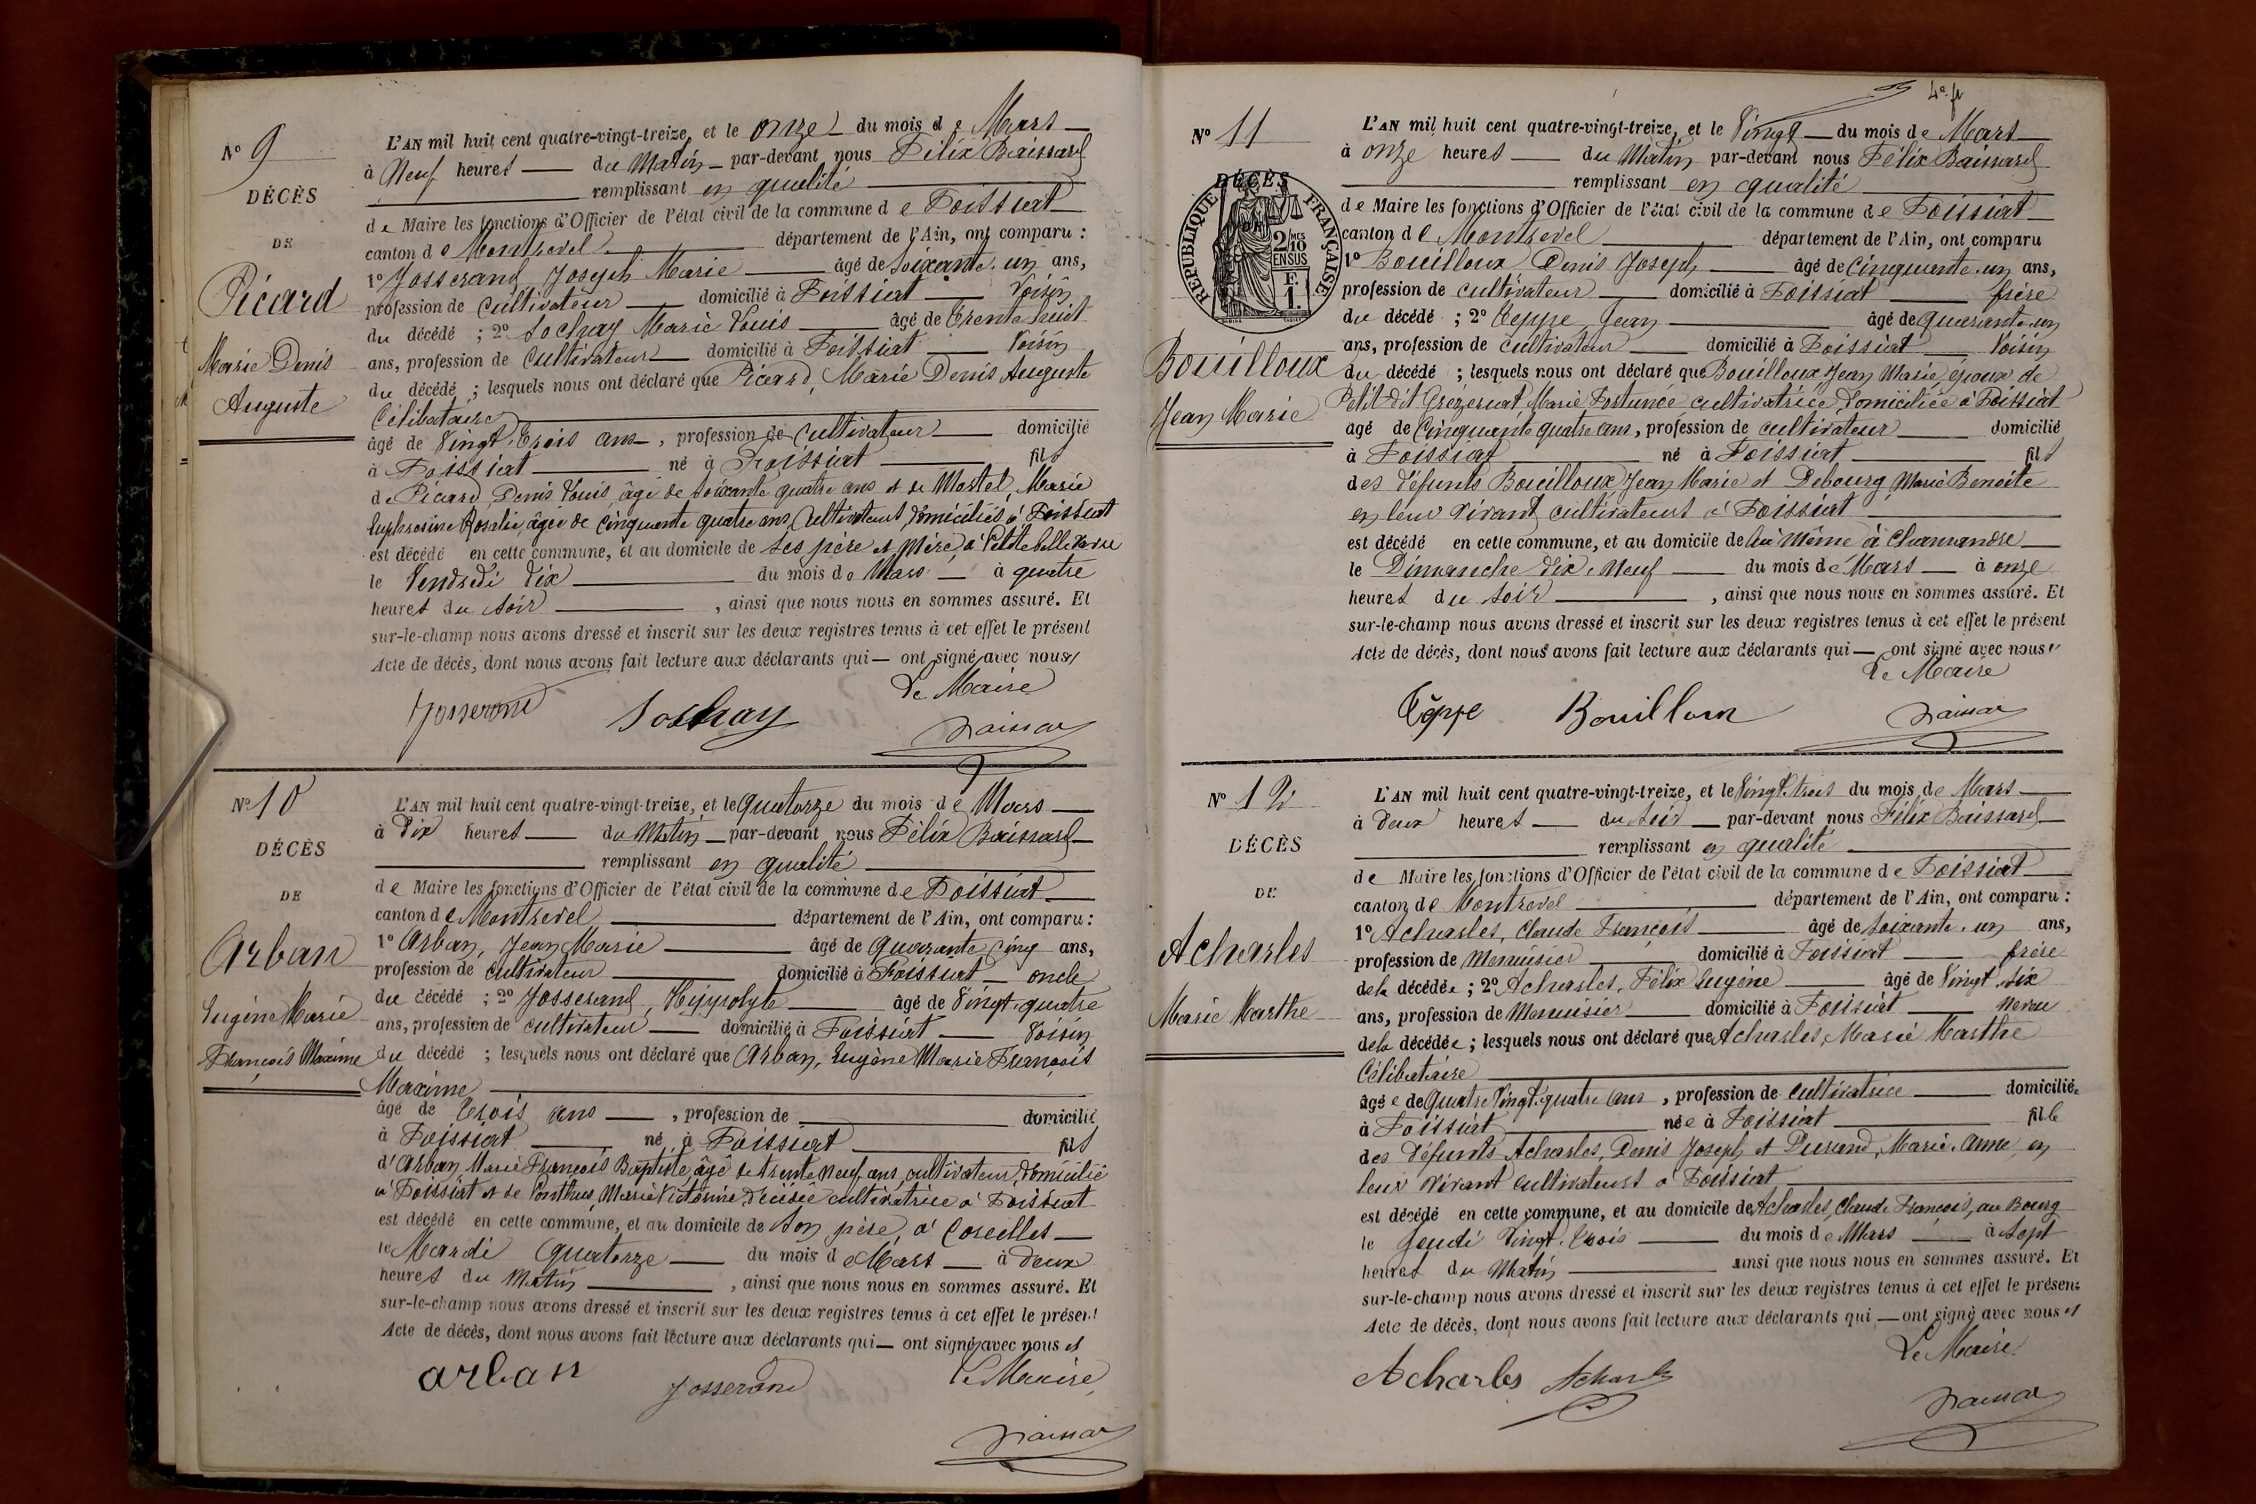 N° 9
DÉCÈS
DE
Picard
Marie Denis
Auguste
L'AN mil huit cent quatre-vingt-treize, et le onze du mois de Mars
à Neuf heures du Matin par-devant nous Félix Baissard
remplissant en qualité
de Maire les fonctions d'Officier de l'état civil de la commune de Foissiat
canton de Montrevel département de l'Ain, ont comparu :
1° Josserand, Joseph Marie âgé de soixante un ans,
profession de cultivateur domicilié à Foissiat Voisin
du décédé ; 2° Sochay Marie Louis âgé de trente huit
ans, profession de cultivateur domicilié à Foissiat Voisin
du décédé ; lesquels nous ont déclaré que Picard, Marie Denis Auguste
Célibataire
âgé de Vingt trois ans, profession de cultivateur domicilié
à Foissiat né à Foissiat fils
de Picard Denis Louis âgé de soixante quatre ans et de Mortel, Marie
Euphrosine Rosalie, âgée de cinquante quatre ans, cultivateurs domiciliés à Foissiat
est décédé en cette commune, et au domicile de ses père et Mère, à Petite belle vavre
le Vendredi dix du mois de Mars à quatre
heures du soir , ainsi que nous nous en sommes assuré. Et
sur-le-champ nous avons dressé et inscrit sur les deux registres tenus à cet effet le présent
Acte de décès, dont nous avons fait lecture aux déclarants qui ont signé avec nous
Le Maire
Josserand Sochay Baissard
N° 10
DÉCÈS
DE
Arban
Eugène Marie
François Maxime
L'AN mil huit cent quatre-vingt-treize, et le quatorze du mois de Mars
à dix heures du Matin par-devant nous Félix Baissard
remplissant en qualité
de Maire les fonctions d'Officier de l'état civil de la commune de Foissiat
canton de Montrevel département de l'Ain, ont comparu :
1° Arban, Jean Marie âgé de quarante cinq ans,
profession de cultivateur domicilié à Foissiat oncle
du décédé ; 2° Josserand, Hippolyte âgé de Vingt quatre
ans, profession de cultivateur domicilié à Foissiat Voisin
du décédé ; lesquels nous ont déclaré que Arban, Eugène Marie François
Maxime
âgé de trois ans , profession de domicilié
à Foissiat né à Foissiat fils
d'Arban Marie François Baptiste âgé de trente neuf ans, cultivateur, domicilié
à Foissiat et de Ponthus, Marie Victorine, décédée cultivatrice à Foissiat
est décédé en cette commune, et au domicile de son père, à Corcelles
le Mardi Quatorze du mois de Mars à deux
heures du Matin , ainsi que nous nous en sommes assuré. Et
sur-le-champ nous avons dressé et inscrit sur les deux registres tenus à cet effet le présent
Acte de décès, dont nous avons fait lecture aux déclarants qui ont signé avec nous et
Le Maire,
arban Josserand
Baissard
4e ft
N° 11
DÉCÈS
DE
RÉPUBLIQUE FRANÇAISE
2/10 MES
EN SUS
F.
1.
Bouilloux
Jean Marie
L'AN mil huit cent quatre-vingt-treize, et le Vingt du mois de Mars
à onze heures du Matin par-devant nous Félix Baissard
remplissant en qualité
de Maire les fonctions d'Officier de l'état civil de la commune de Foissiat
canton de Montrevel département de l'Ain, ont comparu
1° Bouilloux Denis Joseph âgé de cinquante un ans,
profession de cultivateur domicilié à Foissiat frère
du décédé ; 2° Teppe Jean âgé de quarante un
ans, profession de cultivateur domicilié à Foissiat Voisin
du décédé ; lesquels nous ont déclaré que Bouilloux Jean Marie, époux de
Petit dit Grézeriat Marie Fortunée cultivatrice, domiciliée à Foissiat
âgé de Cinquante quatre ans, profession de cultivateur domicilié
à Foissiat né à Foissiat fils
des défunts Bouilloux Jean Marie et Debourg Marie Benoite
en leur vivant cultivateurs à Foissiat
est décédé en cette commune, et au domicile de lui même à Chamandre
le Dimanche dix Neuf du mois de Mars à onze
heures du soir , ainsi que nous nous en sommes assuré. Et
sur-le-champ nous avons dressé et inscrit sur les deux registres tenus à cet effet le présent
Acte de décès, dont nous avons fait lecture aux déclarants qui ont signé avec nous
Le Maire
Teppe Bouilloux Baissard
N° 12
DÉCÈS
DE
Acharles
Marie Marthe
L'AN mil huit cent quatre-vingt-treize, et le Vingt trois du mois de Mars
à deux heures du soir par-devant nous Félix Baissard
remplissant en qualité
de Maire les fonctions d'Officier de l'état civil de la commune de Foissiat
canton de Montrevel département de l'Ain, ont comparu :
1° Acharles, Claude François âgé de soixante un ans,
profession de Menuisier domicilié à Foissiat frère
de la décédée ; 2° Acharles, Félix Eugène âgé de Vingt six
ans, profession de Menuisier domicilié à Foissiat neveu
de la décédée ; lesquels nous ont déclaré que Acharles, Marie Marthe
Célibataire
âgée de Quatre Vingt quatre ans , profession de cultivatrice domiciliée
à Foissiat née à Foissiat fille
des défunts Acharles, Denis Joseph et Durand, Marie Anne, en
leur vivant cultivateurs à Foissiat
est décédé en cette commune, et au domicile de Acharles, Claude François, au Bourg
le Jeudi Vingt trois du mois de Mars à sept
heures du Matin ainsi que nous nous en sommes assuré. Et
sur-le-champ nous avons dressé et inscrit sur les deux registres tenus à cet effet le présent
Acte de décès, dont nous avons fait lecture aux déclarants qui ont signé avec nous et
Le Maire
Acharles Acharles
Baissard